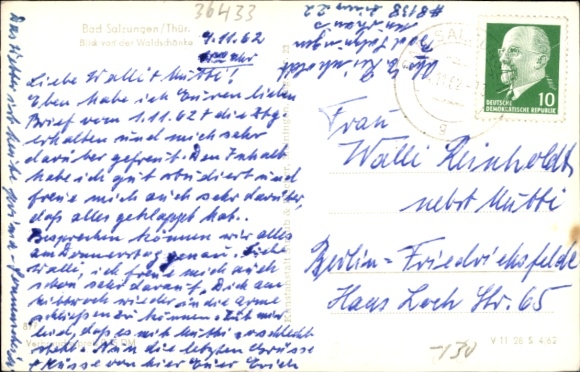 36433
Bad Salzungen/Thür.
Blick von der Waldschänke
9.11.62
Uhr
Liebe Walli + Mutti!
Eben habe ich Euren lieben
Brief vom 7.11.62 + die Ztg.
erhalten und mich sehr
darüber gefreut. Den Inhalt
habe ich gut studiert und
freue mich auch sehr darüber,
daß alles geklappt hat.
Besprechen können wir alles
am Donnerstag genau. Liebe
Walli, ich freue mich auch
schon sehr darauf. Dich am
Mittwoch wieder in die Arme
schließen zu können. Tut mir
leid, daß es mit Mutti so schlecht
steht. Nun die letzten Grüsse
+ Küsse von hier Euer Erich
Bad Salzungen
DEUTSCHE
DEMOKRATISCHE REPUBLIK
10
Frau
Walli Reinholdt
nebst Mutti
Berlin-Friedrichsfelde
Hans Loch Str. 65
V 11 28 S 4.62
-130